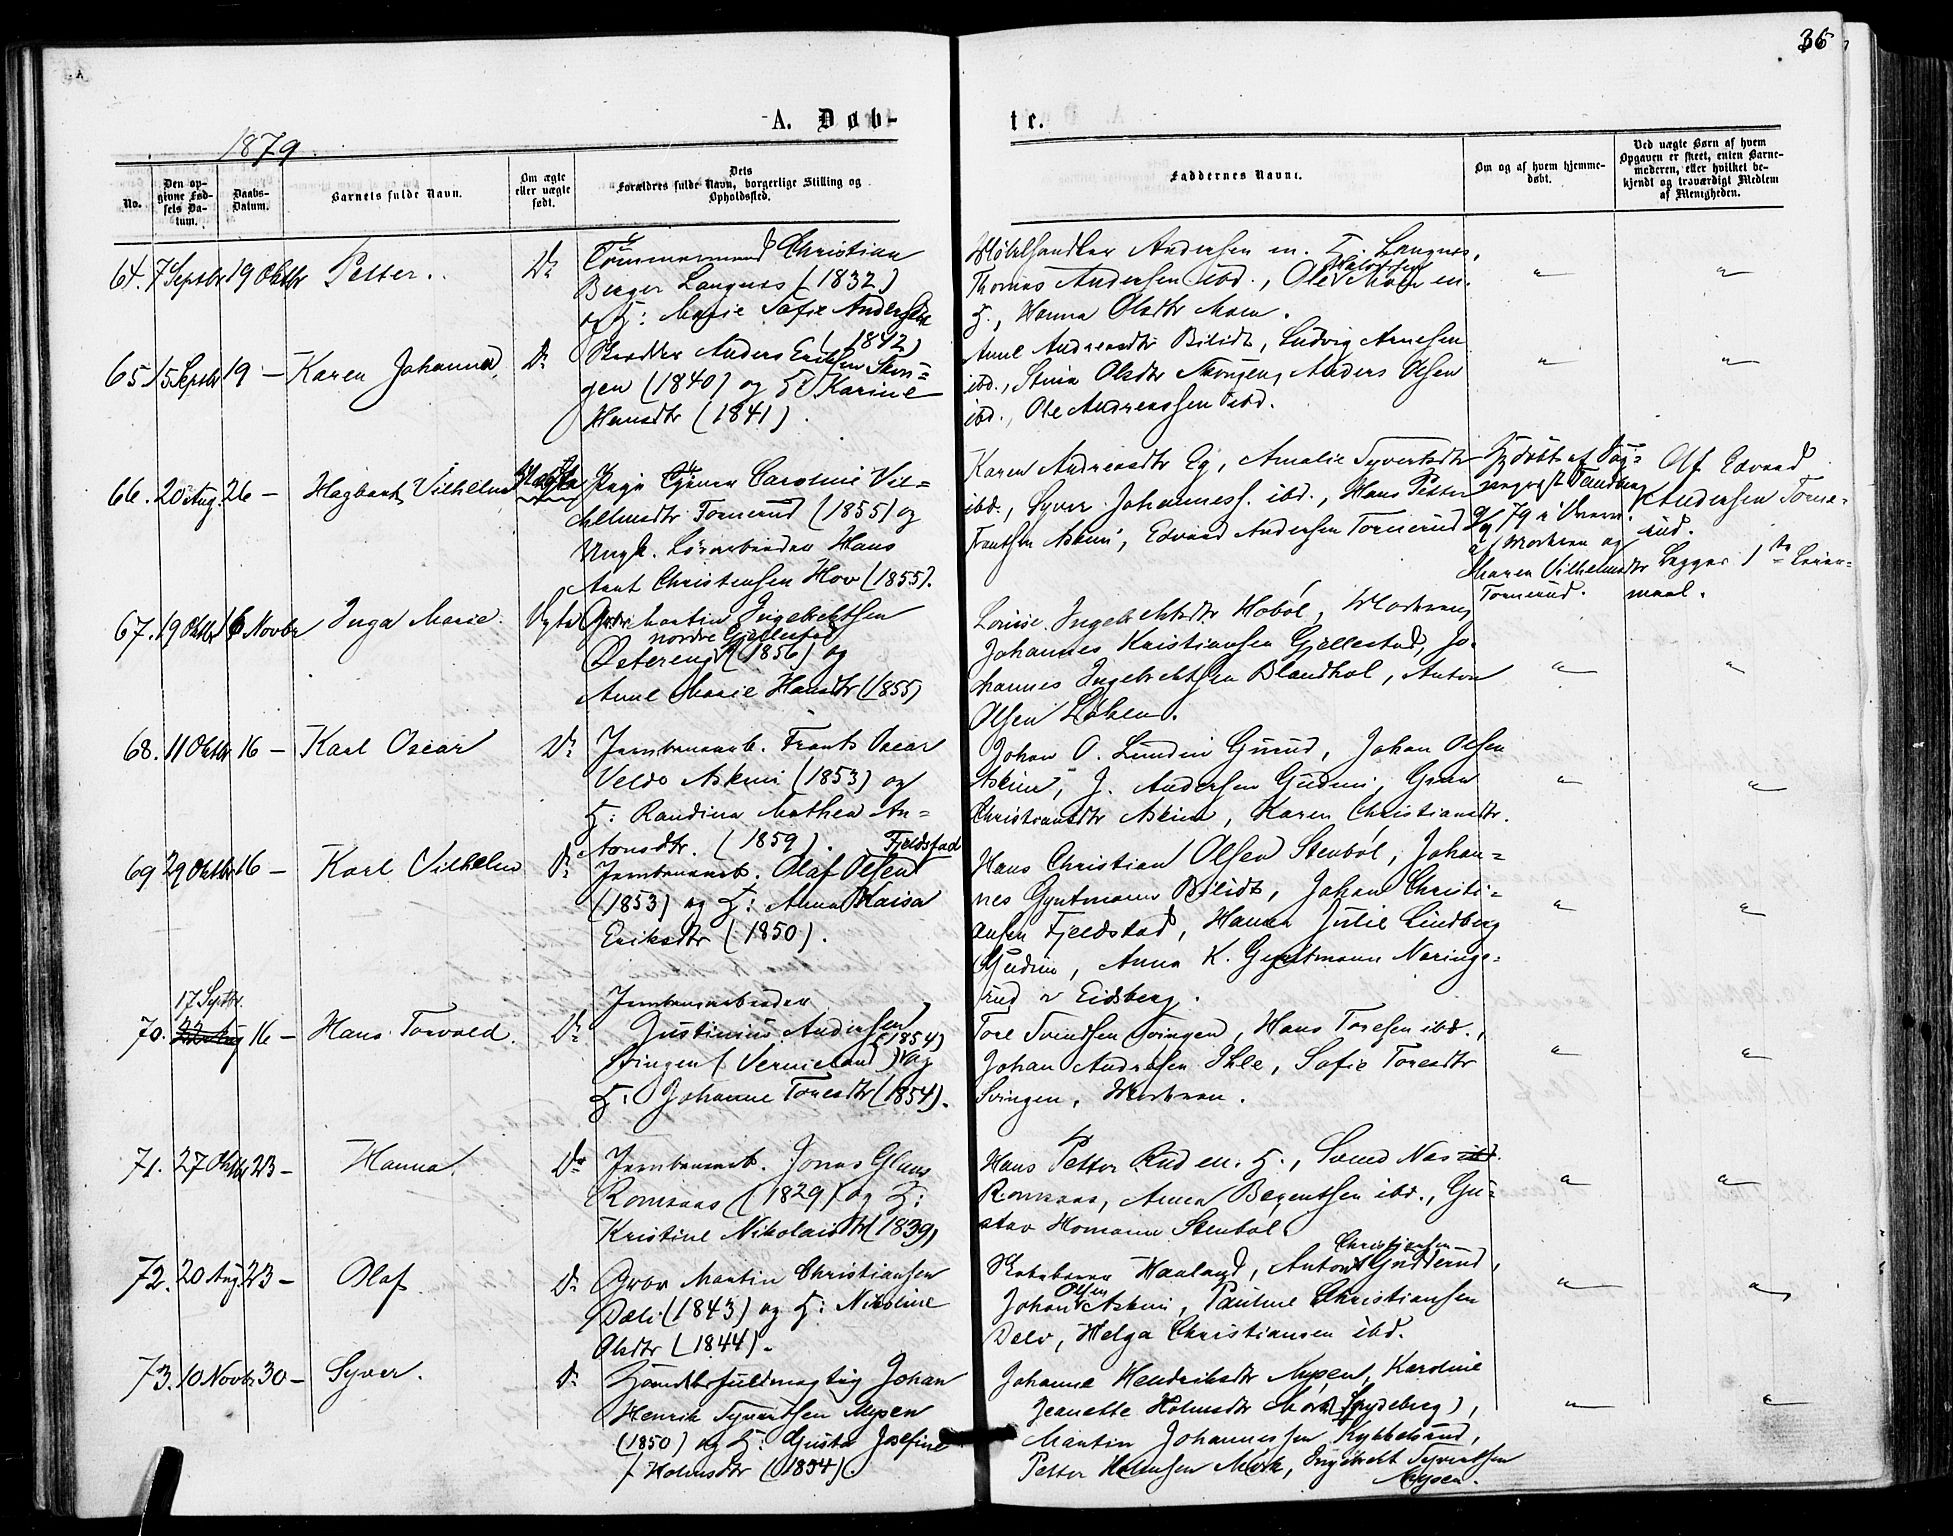 36
A. Døb-
te.
1879
No.
Den op-
givne Fød-
sels Da-
tum.
Daabs-
Datum.
Barnets fulde Navn.
Om ægte
eller uægte
født.
Dets
Forældres fulde Navn, borgerlige Stilling og
Opholdssted.
Faddernes Navne.
Om og af hvem hjemme-
døbt.
Ved uægte Børn af hvem
Opgaven er skeet, enten Barne-
moderen, eller hvilket be-
kjendt og troværdigt Medlem
af Menigheden.
64. 7 Septbr 19 Oktbr Petter. Do
Tømmermand Christian
Berger Langnes (1832)
og H: Marie Sofie Andersdtr
(1842)
Andersen m. H. Langnes,
Thomas Andersen ibd., Ole Halvorsen Moen m.
H., Hanna Olsdtr Moen.
" "
65. 15 Septbr 19 — Karen Johanna. Do
Skrædder Anders Eriksen Skon-
gen (1840) og H: Karine
Hansdtr (1841).
Anne Andreasdtr Bilidt, Ludvig Arnesen
ibd., Stina Olsdtr Skongen, Anders Olsen
ibd., Ole Andreassen ibd.
" "
66. 20 Aug. 26 — Hagbart Vilhelm Uægte
Pige Caroline Vil-
helmsdtr Tornerud (1855) og
Ungk. Hans
Arnt Christensen Hov (1855).
Karen Andreasdtr Eg, Amalie Syvertsdtr
ibd., Syver Johanness. ibd., Hans Petter
Frantsen Askim, Edvard Andersen Tornerud
Hjdøbt af
79 i
af Moderen og
Maren Vilhelmsdtr
Tornerud.
Af Edvard
Andersen Torne-
rud.
Begges 1ste Leier-
maal.
67. 19 Oktbr 16 Novbr Inga Marie. Ægte
Grbr Martin Ingebrethsen
nordre Gjellestad
Østereng (1856) og
Anne Marie Hansdtr (1855)
Louise Ingebrethsdtr Hobøl, Moderen,
Johannes Kristiansen Gjellestad, Jo-
hannes Ingebrethsen Blandhol, Anton
Olsen Løken.
" "
68. 11 Oktbr 16 — Karl Oscar Do
Jernbanearb. Frants Oscar
Veldo Askim (1853) og
H: Randina Mathea An-
tonsdtr. (1859).
Johan O. Lundin Gudim, Johan Olsen
Askim, J. Andersen Gudim,
Christiansdtr Askim, Karen Christiansdtr.
" "
69 29 Oktbr 16 — Karl Vilhelm Do
Fjeldstad
Jernbanearb. Olaf Olsen
(1853) og H: Anna Kaisa
Eriksdtr (1850).
Hans Christian Olsen Stenbøl, Johan-
nes Gyntmann Bilidt, Johan Christi-
ansen Fjeldstad, Hanna Julie Lindberg
Gudim, Anna K. Gyntmann Naringe-
rud i Eidsberg.
" "
17 Septbr.
70. 22 Aug 16 — Hans Torvald. Do
Jernbanearbeider
Justinius Andersen (1854)
Svingen (Vermeland) og
H: Johanne Toresdtr (1854).
Tore Svendsen Svingen, Hans Toresen ibd.,
Johan Andresen Ihle, Sofie Toresdtr
Svingen, Moderen.
" "
71. 27 Oktbr 23 — Hanna. Do
Jernbanearb. Jonas Glans
Romsaas (1829) og H:
Kristine Nikolaisdtr (1839)
Hans Petter Rud m. H., Svend Næs ibd.
Romsaas, Anna Begentsen ibd., Gu-
stav Homann Stenbøl
" "
72. 20 Aug 23 — Olaf. Do
Grbr Martin Christiansen
Dæli (1843) og H: Nikoline
Olsdtr (1844).
Haaland, Anton Christiansen Gudderud,
Johan Olsen Askim, Pauline Christiansen
Dælv, Helga Christiansen ibd.
" "
73. 10 Novbr 30 — Syver. Do
Handelsfuldmægtig Johan
Henrik Syvertsen Mysen
(1850) og H: Gusta Josefine
Holmsdtr (1854).
Johanne Hendriksdtr Mysen, Karoline
Jeanette Holmsdtr Mørk (Spydeberg),
Martin Johannessen Kykkelsrud,
Petter Holmsen Mørk, Ingebreth Syvertsen
Mysen.
" "